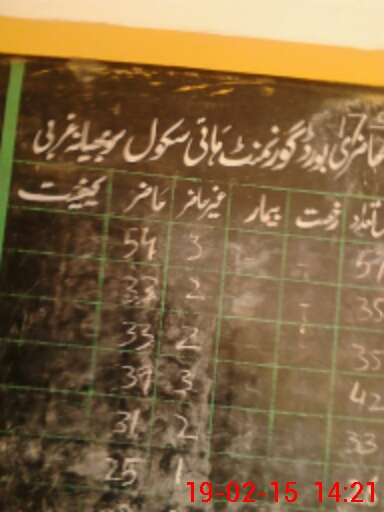 حاضری بورڈ گورنمنٹ ہائی سکول سوبھیانہ غربی
تعداد رخصت بیمار غیر حاضر حاضر کیفیت
57 - - 3 54
35 - - 2 33
35 2 33
42 3 39
33 2 31
1 25
19-02-15 14:21